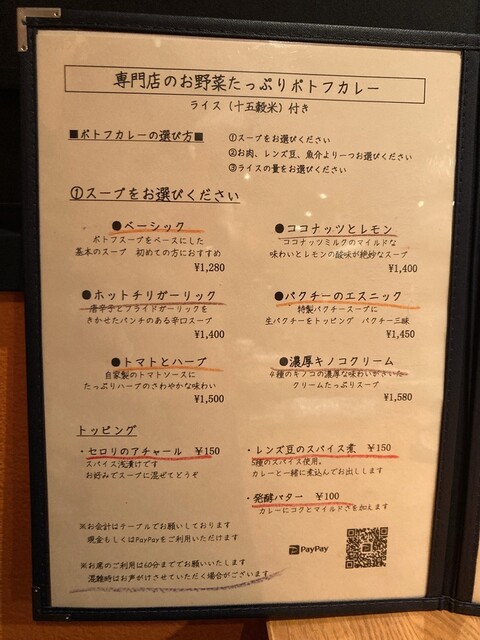 専門店のお野菜たっぷりポトフカレー
ライス（十五穀米）付き
■ポトフカレーの選び方■
①スープをお選びください
②お肉、レンズ豆、魚介より一つお選びください
③ライスの量をお選びください
①スープをお選びください
●ベーシック
ポトフスープをベースにした
基本のスープ 初めての方におすすめ
¥1,280
●ココナッツとレモン
ココナッツミルクのマイルドな
味わいとレモンの酸味が絶妙なスープ
¥1,400
●ホットチリガーリック
唐辛子とフライドガーリックを
きかせたパンチのある辛口スープ
¥1,400
●パクチーのエスニック
特製パクチースープに
生パクチーをトッピング パクチー三昧
¥1,450
●トマトとハーブ
自家製のトマトソースに
たっぷりハーブのさわやかな味わい
¥1,500
●濃厚キノコクリーム
4種のキノコの濃厚な味わいがきいた
クリームたっぷりスープ
¥1,580
トッピング
・セロリのアチャール ¥150
スパイス浅漬けです
お好みでスープに混ぜてどうぞ
・レンズ豆のスパイス煮 ¥150
5種のスパイス使用。
カレーと一緒に煮込んでお出しします
・発酵バター ¥100
カレーにコクとマイルドさを加えます
※お会計はテーブルでお願いしております
現金もしくはPayPayをご利用いただけます
PayPay
※お席のご利用は60分まででお願いいたします
混雑時はお声がけさせていただく場合がございます